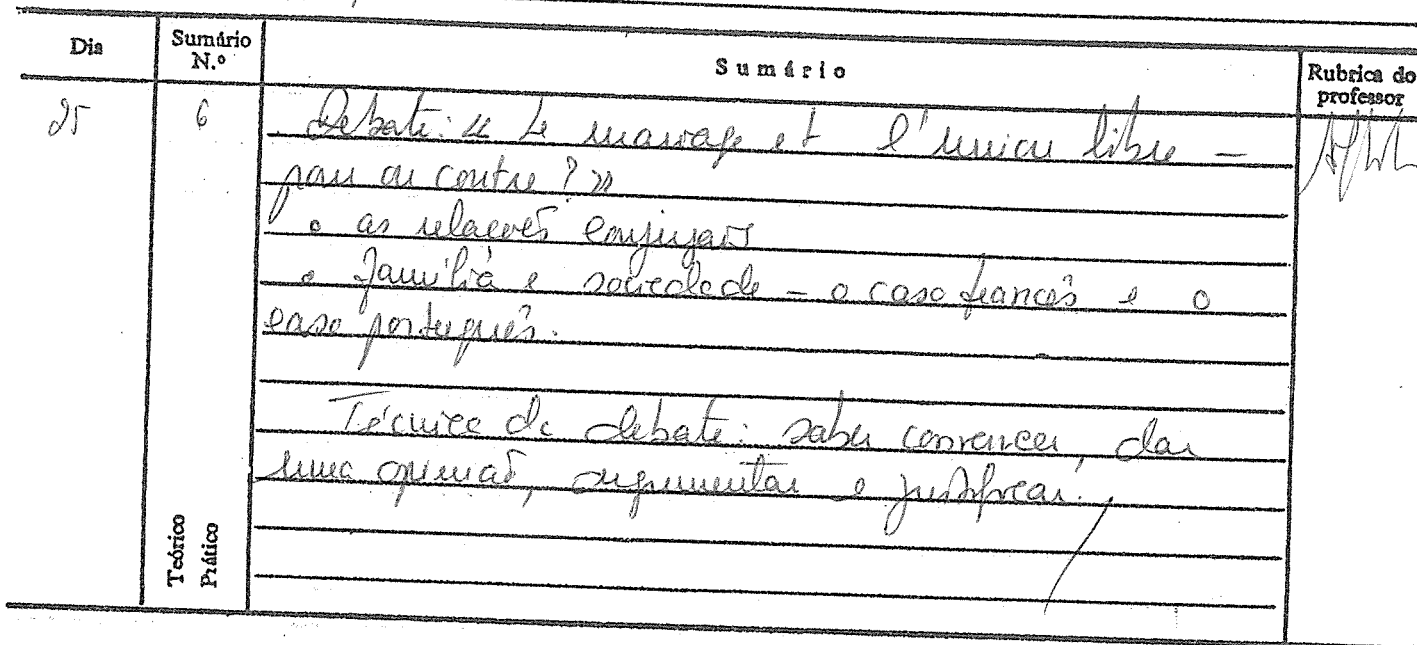 Dia Sumário N.º Sumário Rubrica do professor
25 6 Debate: « Le mariage et l'union libre –
pour ou contre ? »
• as relações conjugais
• família e sociedade – o caso francês e o
caso português.
Técnica de debate: saber convencer, dar
uma opinião, argumentar e justificar.
Teórico
Prático